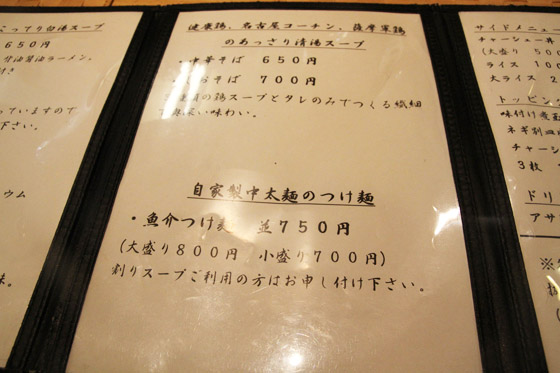 こってり白湯スープ
650円
醤油ラーメン。
っていますので
下さい。
ウム
味。
健康鶏、名古屋コーチン、薩摩軍鶏
のあっさり清湯スープ
・中華そば 650円
そば 700円
鶏スープとタレのみでつくる繊細
味わい。
自家製中太麺のつけ麺
・魚介つけ麺 並750円
(大盛り800円 小盛り700円)
割りスープご利用の方はお申し付け下さい。
サイドメニュー
チャーシュー丼
(大盛り 500
ライス 100
大ライス
トッピン
味付け煮
ネギ別皿
チャーシ
3枚
ドリ
アサ